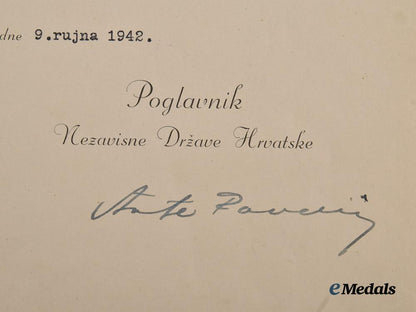 dne 9.rujna 1942.
Poglavnik
Nezavisne Države Hrvatske
Ante Pavelić
eMedals